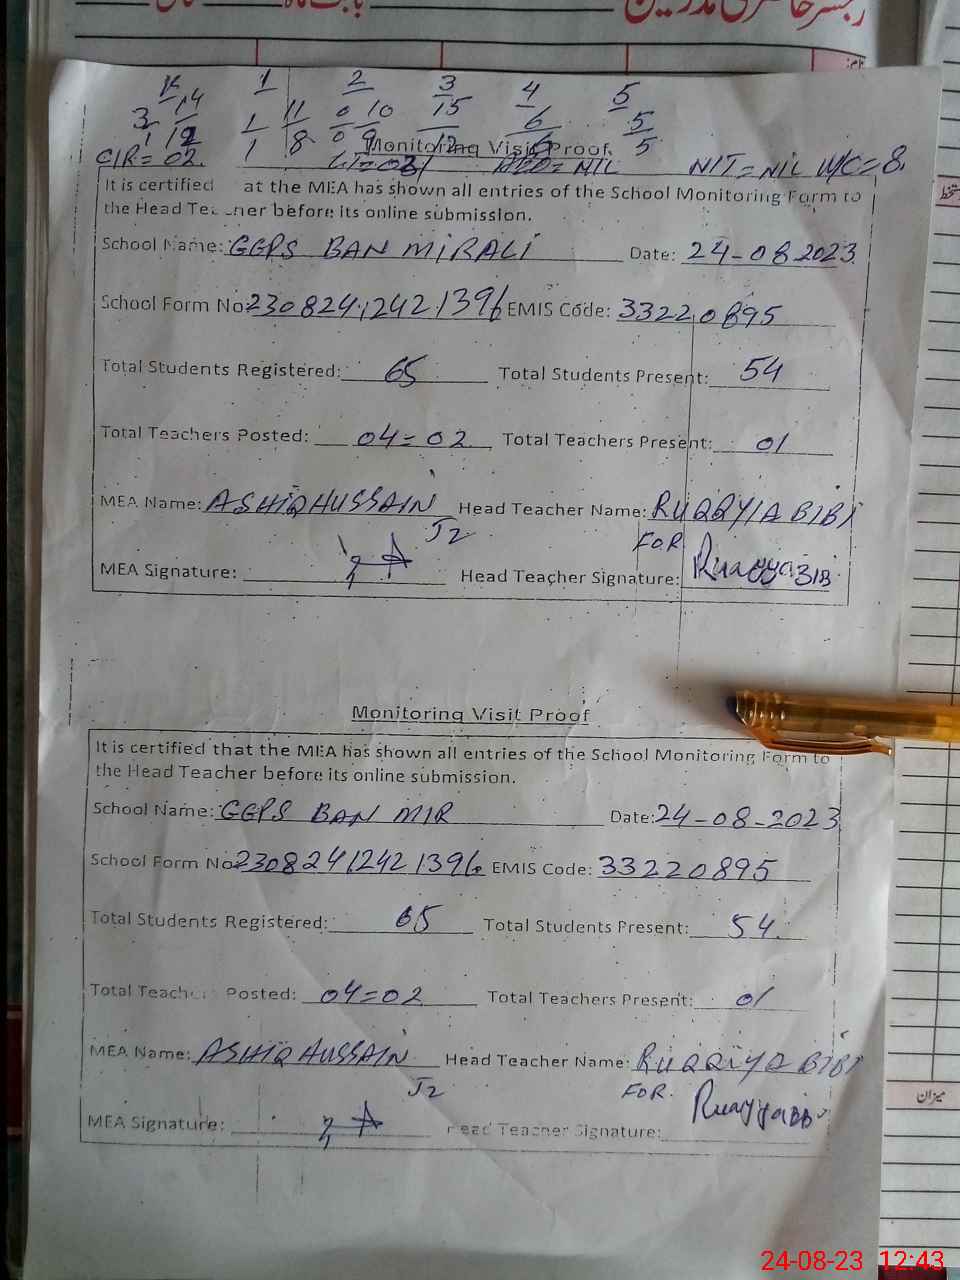 K 1 2 3 4 5
3 14 11 0 10 15 6 5
1 12 1 8 0 9 12 5
Monitoring Visit Proof
CIR = 02. NIT = NIL W/C = 8.
It is certified at the MEA has shown all entries of the School Monitoring Form to
the Head Teacher before its online submission.
School Name: GGPS BAN MIRALI Date: 24-08 2023
School Form No: 2308241242 1396 EMIS Code: 33220895
Total Students Registered: 65 Total Students Present: 54
Total Teachers Posted: 04=02 Total Teachers Present: 01
MEA Name: ASHIQ HUSSAIN Head Teacher Name: RUQQYIA BIBI
J2 FOR
MEA Signature: Head Teacher Signature: Ruqqya BIB
Monitoring Visit Proof
It is certified that the MEA has shown all entries of the School Monitoring Form to
the Head Teacher before its online submission.
School Name: GGPS BAN MIR Date: 24-08-2023
School Form No 2308241242 1396 EMIS Code: 33220895
Total Students Registered: 65 Total Students Present: 54
Total Teachers Posted: 04=02 Total Teachers Present: 01
MEA Name: ASHIQ HUSSAIN Head Teacher Name: RUQQIYA BIBI
J2 FOR.
MEA Signature: Head Teacher Signature:
میزان
24-08-23 12:43